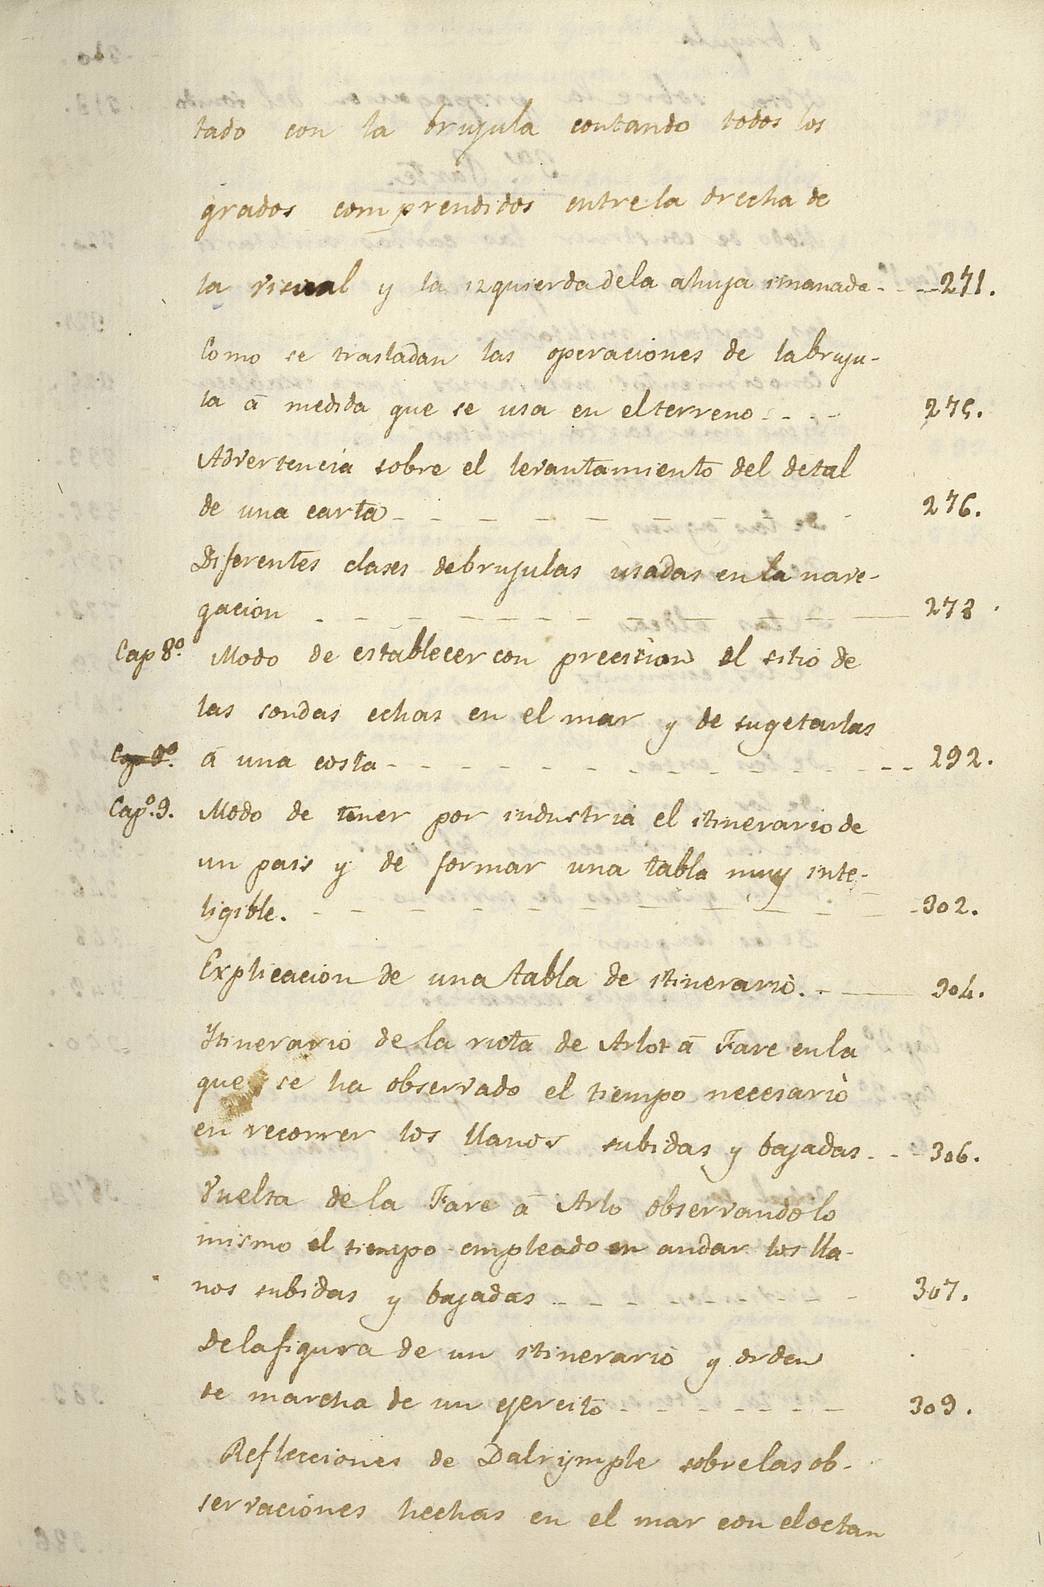 tado con la brujula contando todos los
grados comprendidos entre la drecha de
la visual y la izquierda de la ahuja imanada - - - 271.
Como se trasladan las operaciones de la bruju-
la á medida que se usa en el terreno - - - - 275.
Advertencia sobre el levantamiento del detal
de una carta - - - - - - - - - 276.
Diferentes clases de brujulas usadas en la nave-
gacion - - - - - - - - - 278.
Cap 8º. Modo de establecer con precision el sitio de
las sondas echas en el mar y de sugetarlas
Cap 9º. á una costa - - - - - - - - - - - 292.
Capº. 9. Modo de tener por industria el itinerario de
un pais y de formar una tabla muy inte-
ligible. - - - - - - - - - - - 302.
Explicacion de una tabla de itinerario. - - 304.
Ytinerario de la ruta de Arlot á Fare en la
que se ha observado el tiempo necesario
en recorrer los llanos subidas y bajadas - - - 306.
Vuelta de la Fare á Arlo observando lo
mismo el tiempo empleado en andar los lla-
nos subidas y bajadas - - - - - - - 307.
De la figura de un itinerario y orden
de marcha de un ejercito - - - - - - - 309.
Reflecciones de Dalrymple sobre las ob-
servaciones hechas en el mar con el octan